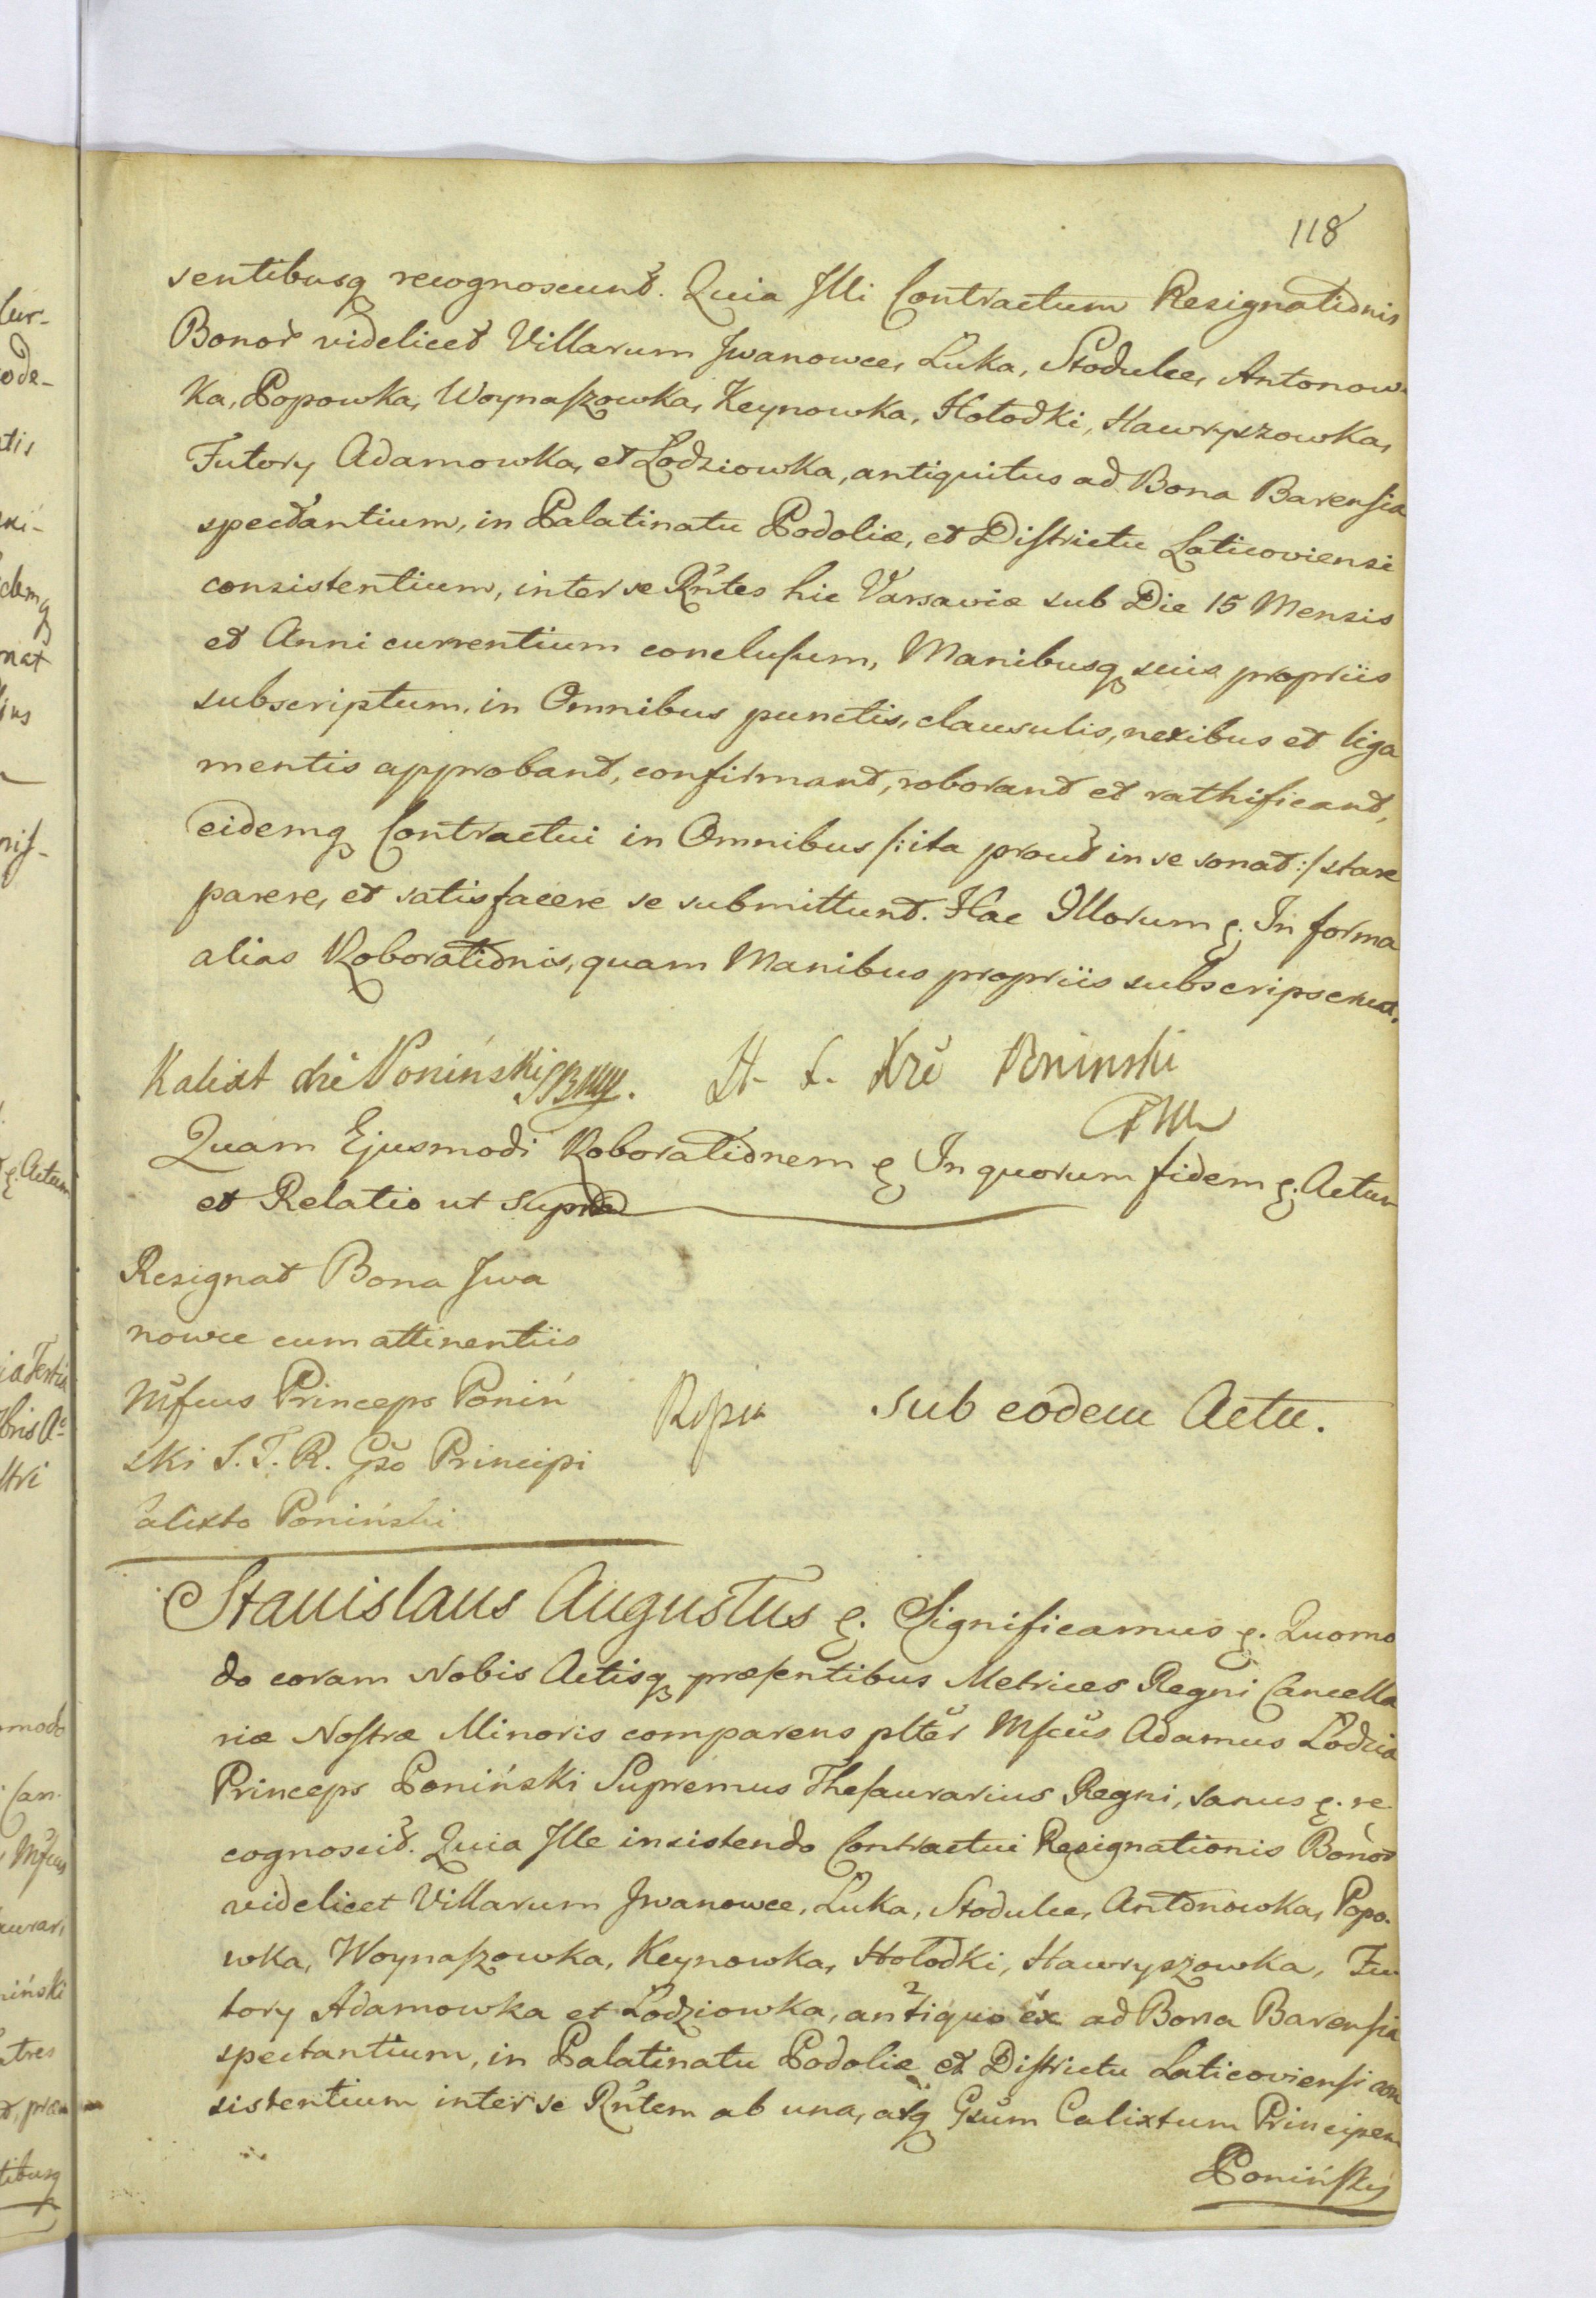 118
sentibusq recognoscunt. Quia Illi Contractum Resignationis
Bonor videlicet Villarum Jwanowce, Łuka, Stodulce, Antonow-
ka, Popowka, Woynaſzowka, Keynowka, Hołodki, Hawryszowka,
Futory Adamowka, et Lodziowka, antiquitus ad Bona Barenſia
spectantium, in Palatinatu Podoliæ, et Diſtrictu Laticoviensi
consistentium, inter se Rntes hic Varsaviæ sub Die 15 Mensis
et Anni currentium concluſum, Manibusq suis propriis
subscriptum, in Omnibus punctis, clausulis, nexibus et liga
mentis approbant, confirmant, roborant et rathificant,
eidemq Contractui in Omnibus /:ita prout in se sonat:/ stare
parere, et satisfacere se submittunt. Hac Illorum &. In forma
alias Roborationis, quam Manibus propriis subscripserunt.
Kalixt Xże Poninski. Xże Poninski
Quam Ejusmodi Roborationem & In quorum fidem &. Actum
et Relatio ut supra
Resignat Bona Jwa
nowce cum attinentiis
Mfcus Princeps Poniń
ski S. T. R. Gso Principi
Calixto Poniński
sub eodem Actu.
Stanislaus Augustus &. Significamus &. Quomo
do coram Nobis Actisq præſentibus Metrices Regni Cancella
riæ Noſtræ Minoris comparens plter Mfcus Adamus Łodzia
Princeps Poniński Supremus Theſaurarius Regni, sanus &. re
cognoscit. Quia Ille insistendo Contractui Resignationis Bonor
videlicet Villarum Jwanowce, Łuka, Stodulce, Antonowka, Popo-
wka, Woynaſzowka, Keynowka, Hołodki, Hawryszowka, Fu
tory Adamowka et Lodziowka, antiquo ex ad Bona Barenſia
spectantium, in Palatinatu Podoliæ et Diſtrictu Laticovienſi con
sistentium inter se Rntem ab una, atq Gsum Calixtum Principem
Poninſki